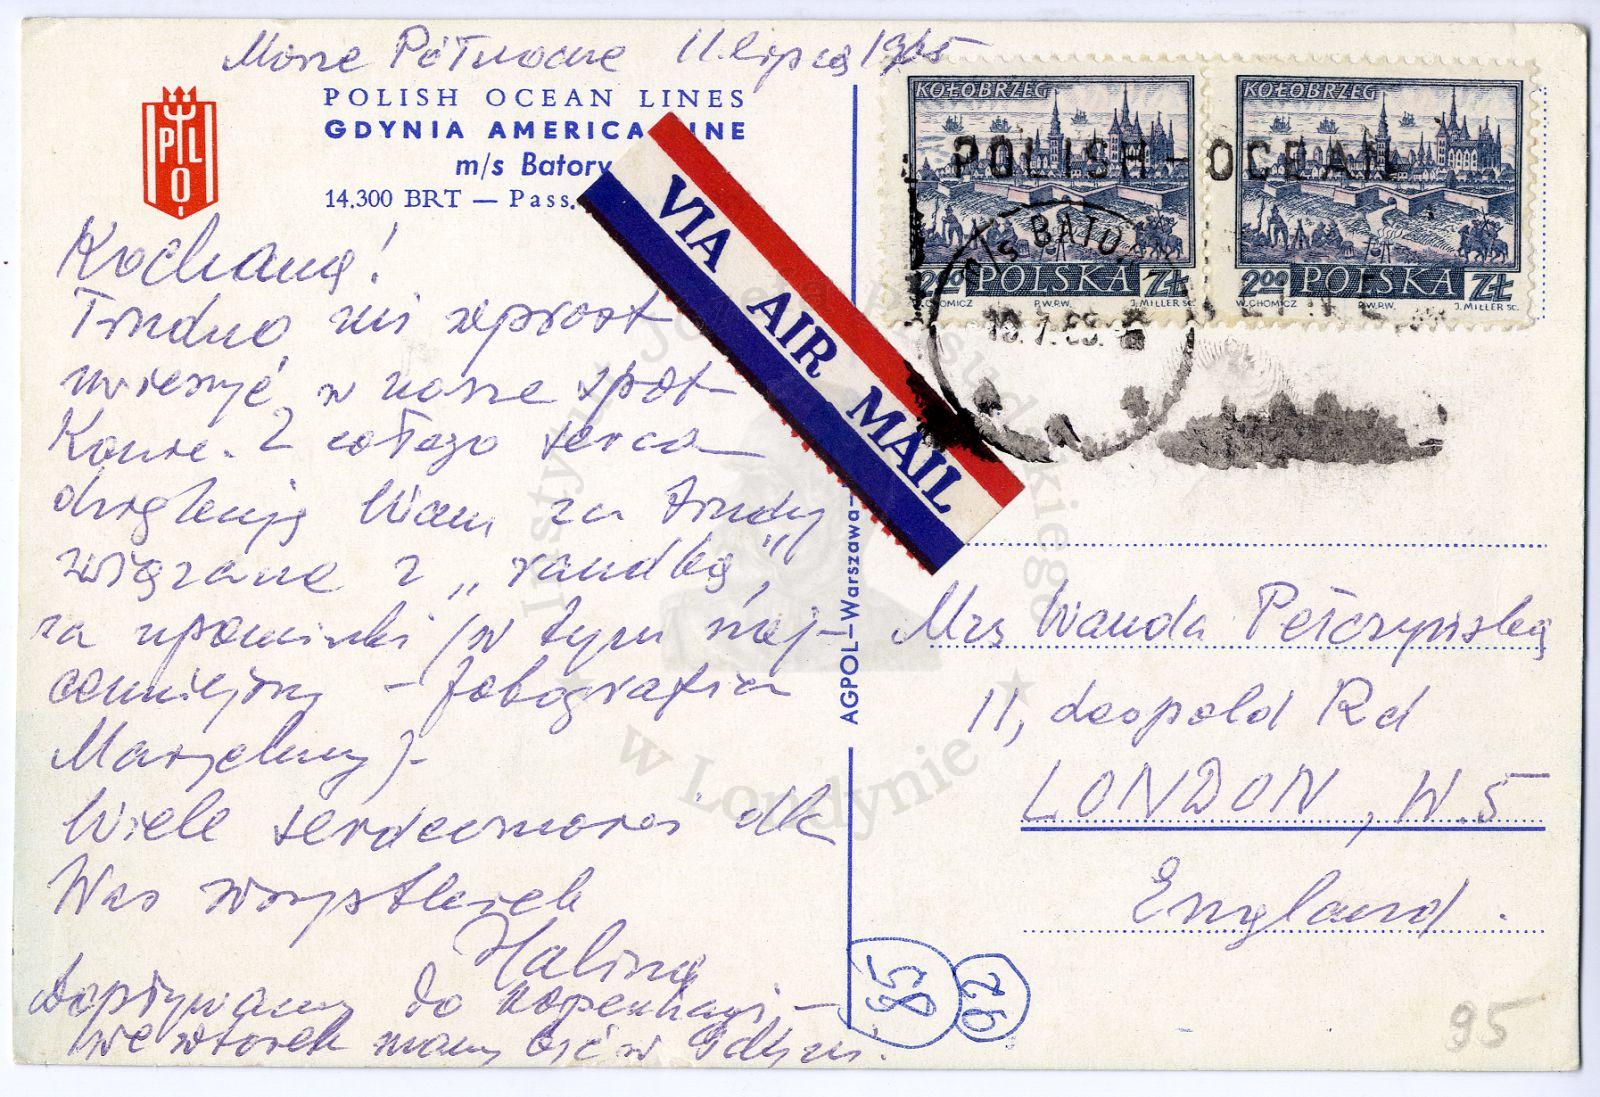 Morze Północne 11 lipca 1965
POLISH OCEAN LINES
GDYNIA AMERICA LINE
m/s Batory
14.300 BRT — Pass.
PLO
Kochana!
Trudno mi wprost
uwierzyć w nasze spot-
kanie. Z całego serca
dziękuję Wam za trudy
związane z „randką”,
za upominki (w tym naj-
cenniejszy – fotografia
Marzeny).
Wiele serdeczności dla
Was wszystkich
Halina
Dopływamy do Kopenhagi –
we wtorek mamy być w Gdyni.
VIA AIR MAIL
AGPOL—Warszawa—
KOŁOBRZEG
2.00 POLSKA ZŁ
W. CHOMICZ P.W.P.W. J. MILLER SC.
KOŁOBRZEG
2.00 POLSKA ZŁ
W. CHOMICZ P.W.P.W. J. MILLER SC.
POLISH - OCEAN
M/S BATO
Mrs Wanda Pełczyńska
11, Leopold Rd
LONDON, W.5
England.
85
92
95
Instytut Józefa Piłsudskiego
w Londynie